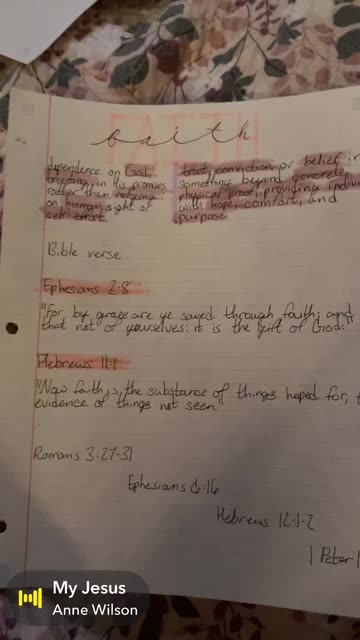 FAITH
faith
dependence on God,
trusting in His promises
rather than relying
on human sight or
self effort
trust, conviction or belief in
something beyond concrete,
physical proof, providing indivi
with hope, comfort, and
purpose.
Bible verse
Ephesians 2:8
"For by grace are ye saved through faith; and
that not of yourselves: it is the gift of God:"
Hebrews 11:1
"Now faith is, the substance of things hoped for, t
evidence of things not seen."
Romans 3:27-31
Ephesians 6:16
Hebrews 12:1-2
1 Peter 1
My Jesus
Anne Wilson